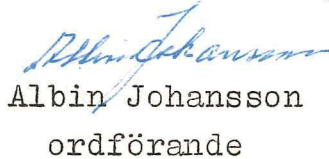 Albin Johansson
Albin Johansson
ordförande